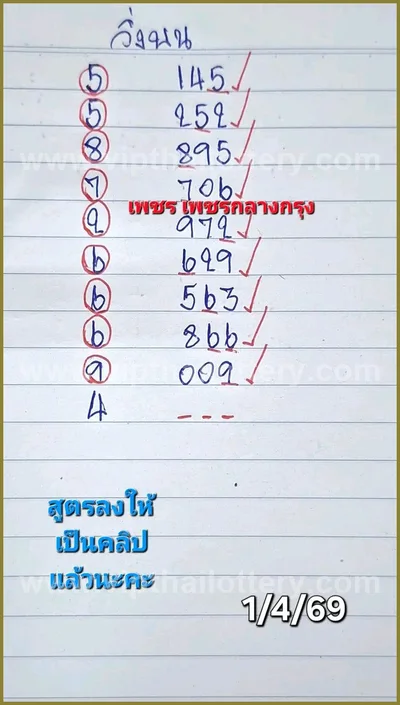 วิ่งบน
5 145
5 252
8 895
www.vipthailottery.com
7 706
เพชร เพชรกลางกรุง
2 972
6 629
6 563
6 866
9 009
4 ---
สูตรลงให้
เป็นคลิป
แล้วนะคะ
1/4/69